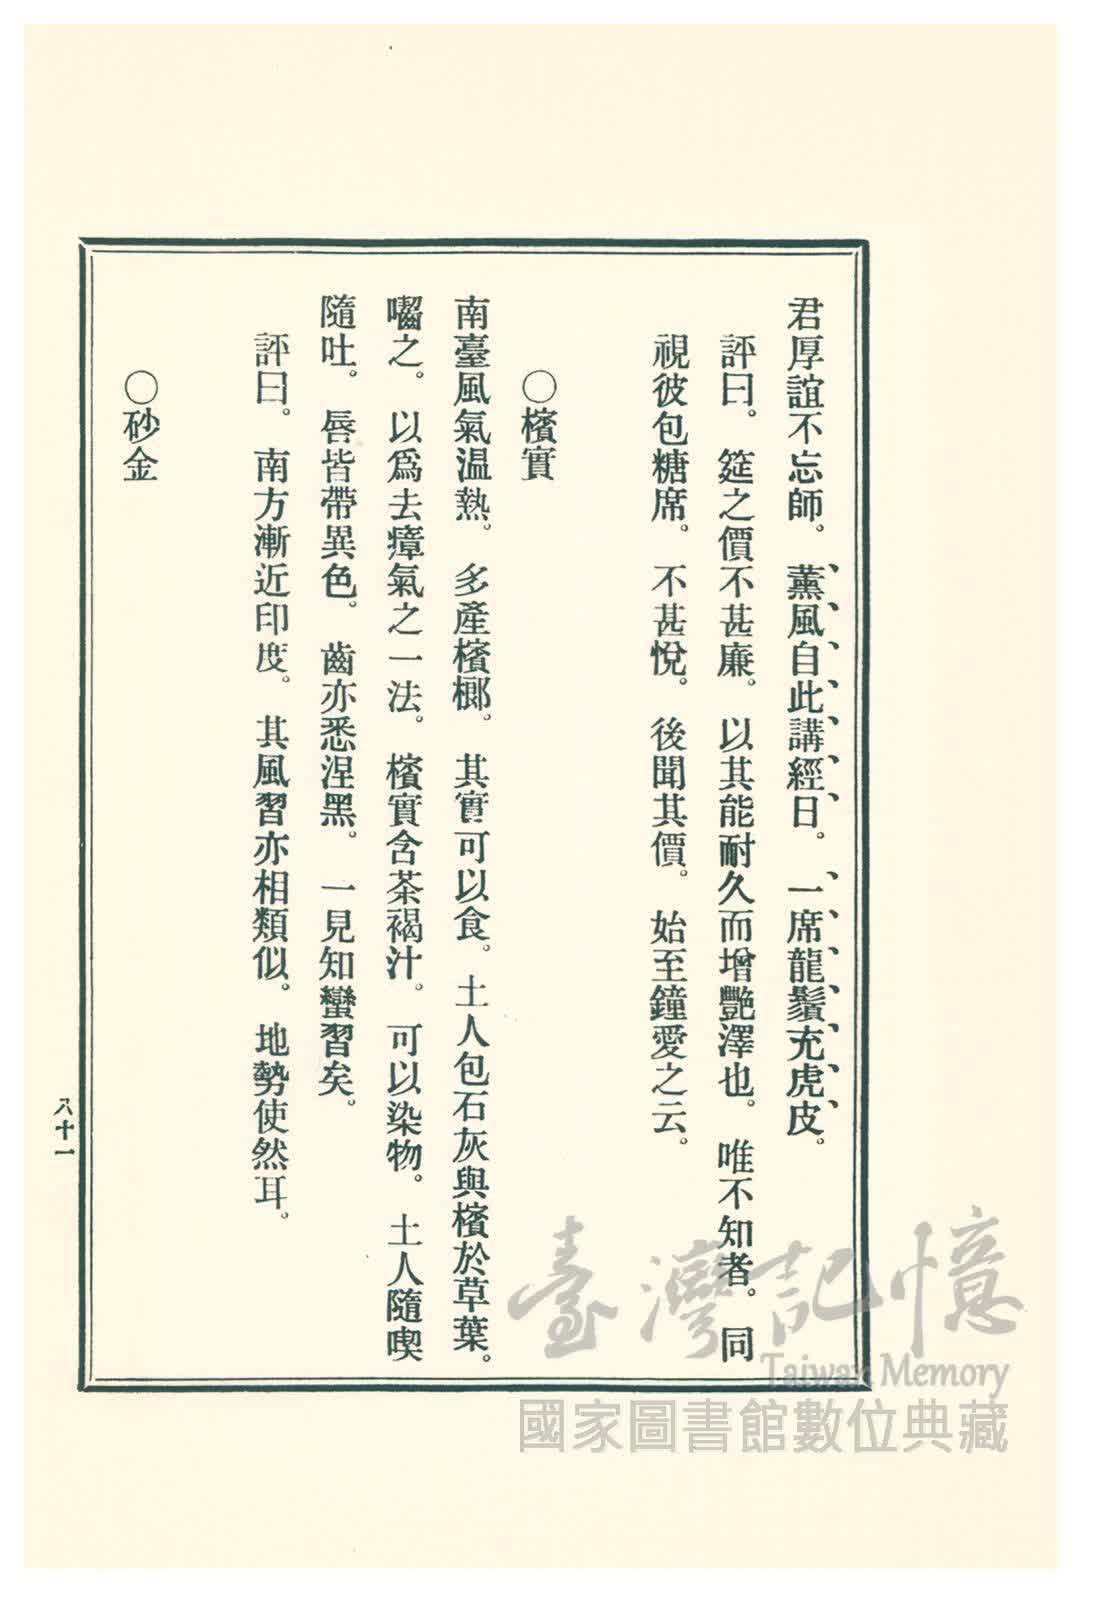 君厚誼不忘師。薰風自此講經日。一席龍鬚充虎皮。
評曰。筵之價不甚廉。以其能耐久而增艷澤也。唯不知者。同
視彼包糖席。不甚悅。後聞其價。始至鐘愛之云。
〇檳實
南臺風氣溫熱。多產檳榔。其實可以食。土人包石灰與檳於草葉。
囓之。以爲去瘴氣之一法。檳實含茶褐汁。可以染物。土人隨喫
隨吐。唇皆帶異色。齒亦悉涅黑。一見知蠻習矣。
評曰。南方漸近印度。其風習亦相類似。地勢使然耳。
〇砂金
八十一
臺灣記憶
Taiwan Memory
國家圖書館數位典藏